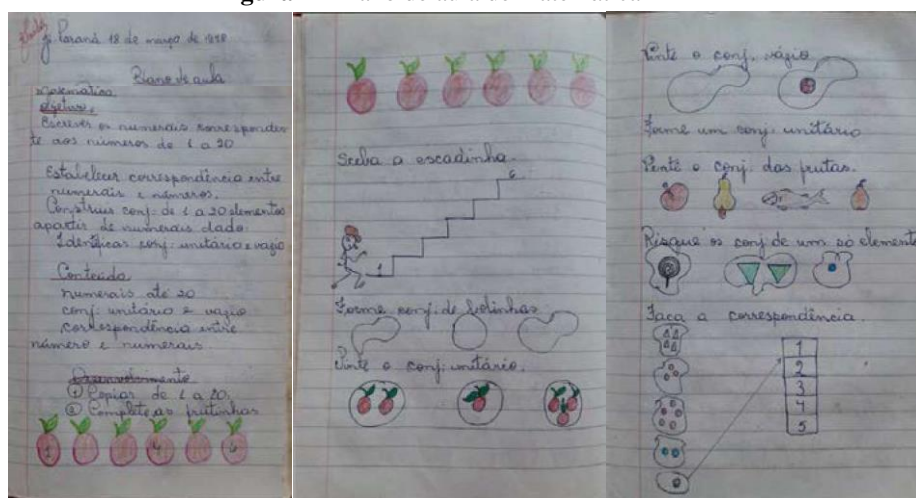 Paraná 18 de março de 1998
Plano de aula
Matemática
Objetivo.
Escrever os numerais corresponden
te aos números de 1 a 20
Estabelecer correspondência entre
numerais e números.
Construir conj. de 1 a 20 elementos
apartir de numerais dado.
Identificar conj. unitário e vazio
Conteúdo
numerais até 20
conj unitário e vazio
correspondência entre
número e numerais.
Desenvolvimento
① Copiar de 1 a 20.
② Complete as frutinhas
1 4 6
Suba a escadinha.
6
1
Forme conj. de bolinhas
Pinte o conj. unitário.
Pinte o conj. vazio
Forme um conj. unitário
Pinte o conj. das frutas.
Risque os conj de um só elemento
Faça a correspondência.
1
2
3
4
5